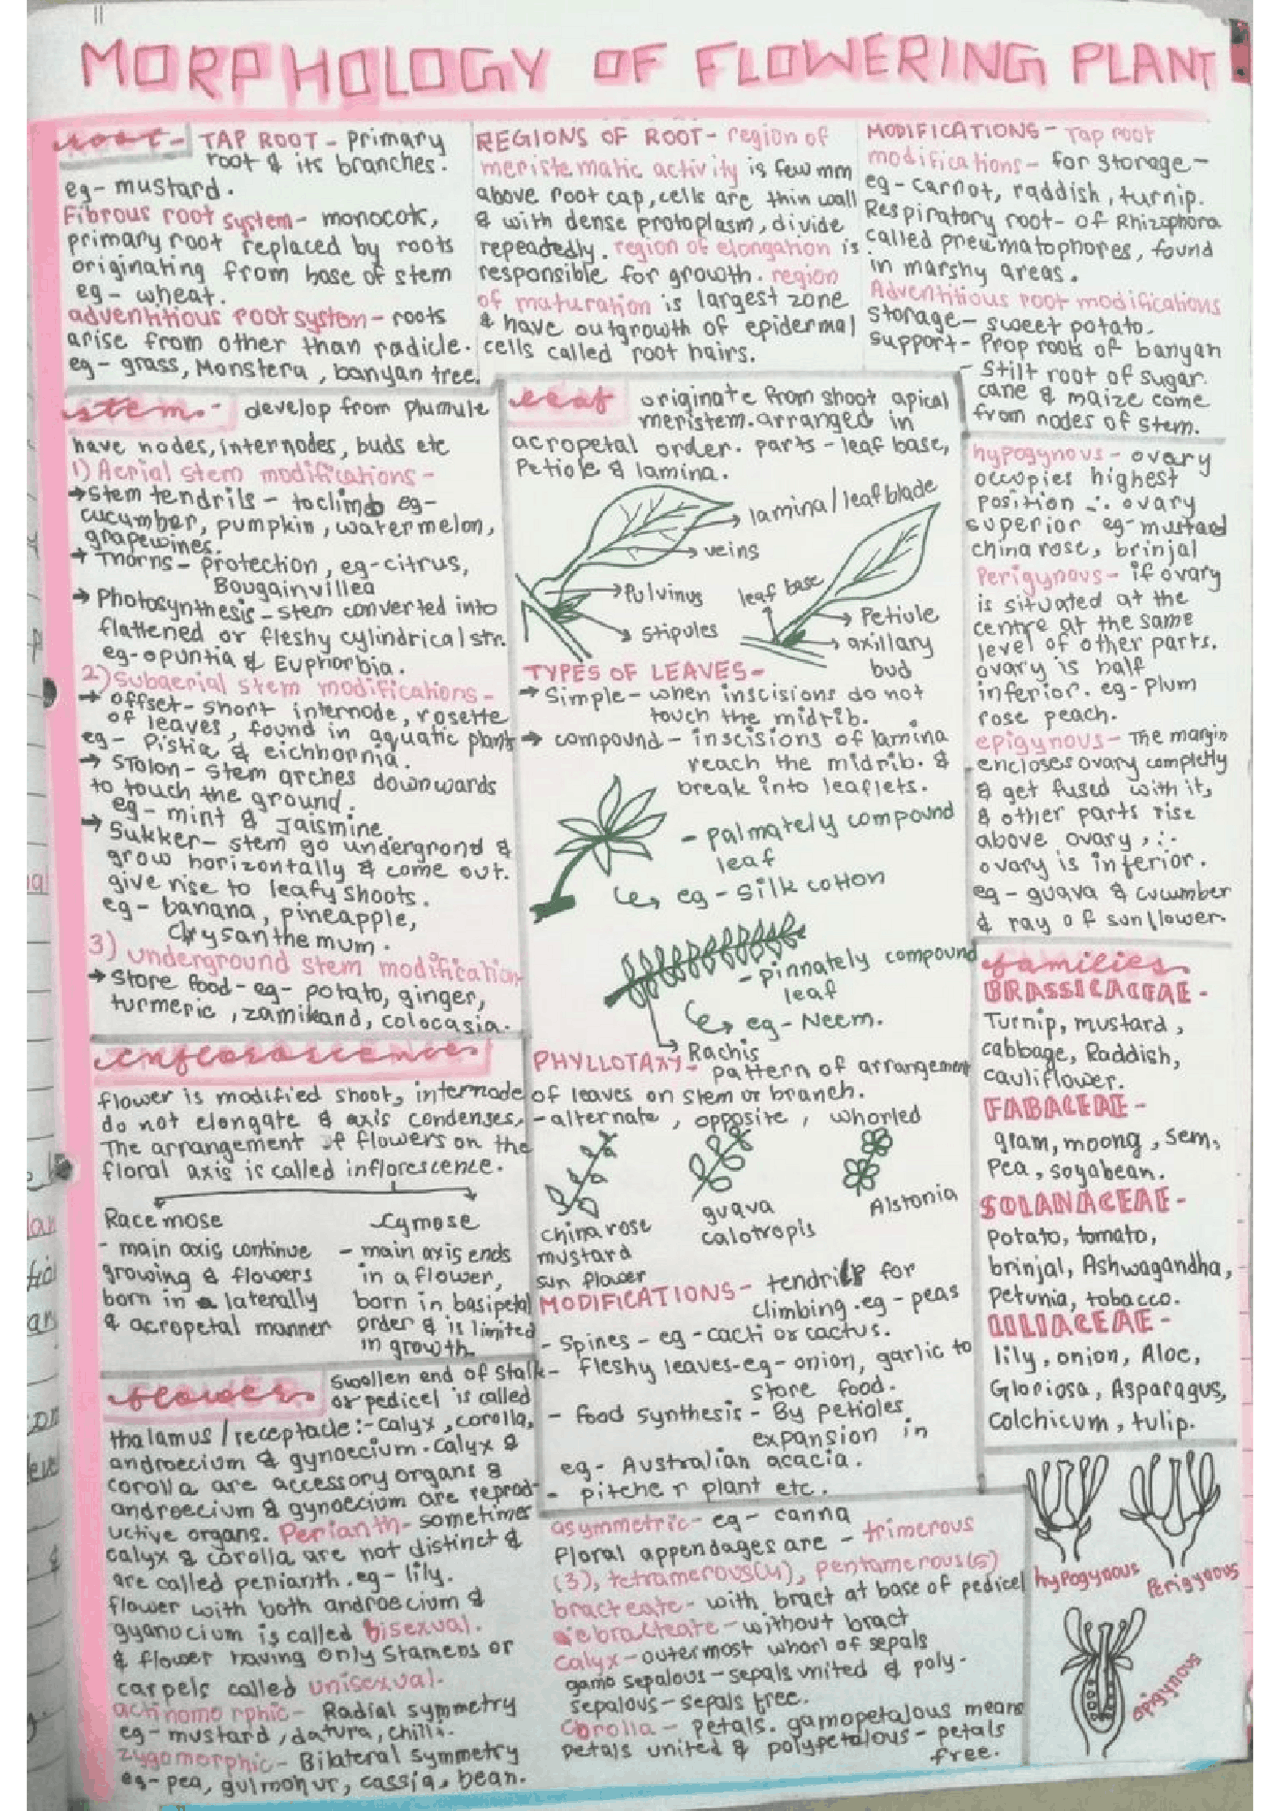 MORPHOLOGY OF FLOWERING PLANT
root- TAP ROOT - Primary
root & its branches.
eg- mustard.
Fibrous root system- monocot,
primary root replaced by roots
originating from base of stem
eg- wheat.
adventitious root system- roots
arise from other than radicle.
eg- grass, Monstera, banyan tree.
REGIONS OF ROOT- region of
meristematic activity is few mm
above root cap, cells are thin wall
& with dense protoplasm, divide
repeatedly. region of elongation is
responsible for growth. region
of maturation is largest zone
& have outgrowth of epidermal
cells called root hairs.
MODIFICATIONS- Tap root
modifications- for storage-
eg- carrot, raddish, turnip.
Respiratory root- of Rhizophora
called pneumatophores, found
in marshy areas.
Adventitious root modifications
Storage- sweet potato.
support- Prop roots of banyan
- Stilt root of sugar
cane & maize come
from nodes of stem.
stem.- develop from plumule
have nodes, internodes, buds etc
1) Aerial stem modifications-
→ stem tendrils - to climb eg-
cucumber, pumpkin, watermelon,
grapewines.
→ Thorns- protection, eg-citrus,
Bougainvillea
→ Photosynthesis-stem converted into
flattened or fleshy cylindrical str.
eg-opuntia & Euphorbia.
2) Subaerial stem modifications-
→ offset- short internode, rosette
of leaves, found in aquatic plant
eg- Pistia & eichhornia.
→ Stolon- stem arches downwards
to touch the ground.
eg- mint & Jaismine.
→ Sukker- stem go undergrond &
grow horizontally & come out.
give rise to leafy shoots.
eg- banana, pineapple,
Chrysanthemum.
3) underground stem modification
→ Store food- eg- potato, ginger,
turmeric, zamikand, colocasia.
leaf originate from shoot apical
meristem. arranged in
acropetal order. parts - leaf base,
Petiole & lamina.
lamina/leafblade
veins
Pulvinus
leaf base
Petiole
Stipules
axillary
bud
TYPES OF LEAVES-
→ Simple- when inscisions do not
touch the midrib.
→ compound- inscisions of lamina
reach the midrib. &
break into leaflets.
- palmately compound
leaf
eg- silk cotton
- pinnately compound
leaf
eg- Neem.
Rachis
PHYLLOTAXY- pattern of arrangement
of leaves on stem or branch.
- alternate, opposite, whorled
china rose
mustard
sun flower
guava
calotropis
Alstonia
MODIFICATIONS- tendrils for
climbing. eg- peas
- Spines- eg- cacti or cactus.
- Fleshy leaves-eg- onion, garlic to
store food.
- food synthesis- By petioles
expansion in
eg- Australian acacia.
- pitcher plant etc.
hypogynous- ovary
occupies highest
position ∴ ovary
superior eg-mustard
china rose, brinjal
Perigynous- if ovary
is situated at the
centre at the same
level of other parts.
ovary is half
inferior. eg- Plum
rose peach.
epigynous- The margin
encloses ovary completly
& get fused with it,
& other parts rise
above ovary, ∴
ovary is inferior.
eg- guava & cucumber
& ray of sunflower.
families
BRASSICACEAE-
Turnip, mustard,
cabbage, Raddish,
cauliflower.
FABACEAE-
gram, moong, sem,
Pea, soyabean.
SOLANACEAE-
Potato, tomato,
brinjal, Ashwagandha,
Petunia, tobacco.
LILIACEAE-
lily, onion, Aloe,
Gloriosa, Asparagus,
Colchicum, tulip.
inflorescence
flower is modified shoot, internode
do not elongate & axis condenses,
The arrangement of flowers on the
floral axis is called inflorescence.
Racemose
- main axis continue
growing & flowers
born in laterally
& acropetal manner
Cymose
- main axis ends
in a flower,
born in basipetal
order & is limited
in growth
flower swollen end of stalk
or pedicel is called
thalamus/receptacle:-calyx, corolla,
androecium & gynoecium. calyx &
corolla are accessory organs &
androecium & gynoecium are reprod-
uctive organs. Perianth- sometimes
calyx & corolla are not distinct &
are called penianth. eg- lily.
flower with both androecium &
gyanocium is called bisexual.
& flower having only Stamens or
carpels called unisexual.
actinomorphic- Radial symmetry
eg- mustard, datura, chilli.
zygomorphic- Bilateral symmetry
eg-pea, gulmohur, cassia, bean.
asymmetric- eg- canna
floral appendages are - trimerous
(3), tetramerous(4), pentamerous(5)
bracteate- with bract at base of pedicel
ebracteate- without bract
Calyx- outermost whorl of sepals
gamosepalous- sepals united & poly-
sepalous- sepals free.
Corolla- petals. gamopetalous means
petals united & polypetalous- petals
free.
hypogynous
Perigynous
epigynous